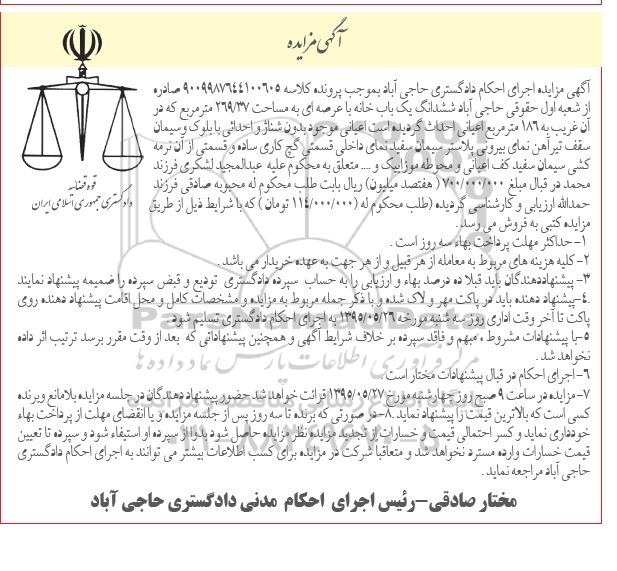 آگهی مزایده
آگهی مزایده اجرای احکام دادگستری حاجی آباد بموجب پرونده کلاسه ۹۰۰۹۹۸۷۶۴۴۱۰۰۶۰۵ صادره
از شعبه اول حقوقی حاجی آباد ششدانگ یک باب خانه با عرصه ای به مساحت ۲۶۹/۳۷ مترمربع که در
آن غریب به ۱۸۶ مترمربع اعیانی احداث گردیده است اعیانی موجود بدون شناژ و احداثی با بلوک وسیمان
سقف تیرآهن نمای بیرونی پلاستر سیمان سفید نمای داخلی قسمتی گچ کاری ساده و قسمتی از آن نرمه
کشی سیمان سفید کف اعیانی و محوطه موزائیک و .... متعلق به محکوم علیه عبدالمجید لشکری فرزند
محمد در قبال مبلغ ۷۰۰/۰۰۰/۰۰۰ ( هفتصد میلیون) ریال بابت طلب محکوم له محبوبه صادقی فرزند
حمدالله ارزیابی و کارشناسی گردیده (طلب محکوم له ۱۱۴/۰۰۰/۰۰۰ تومان ) که با شرایط ذیل از طریق
مزایده کتبی به فروش می رسد.
قوه قضائیه
دادگستری جمهوری اسلامی ایران
۱- حداکثر مهلت پرداخت بهاء سه روز است .
۲- کلیه هزینه های مربوط به معامله از هر قبیل و از هر جهت به عهده خریدار می باشد .
۳- پیشنهاددهندگان باید قبلا ده درصد بهاء و ارزیابی را به حساب سپرده دادگستری تودیع و قبض سپرده را ضمیمه پیشنهاد نمایند
۴.-پیشنهاد دهنده باید در پاکت مهر و لاک شده و با ذکر جمله مربوط به مزایده و مشخصات کامل و محل اقامت پیشنهاد دهنده روی
پاکت تا آخر وقت اداری روز سه شنبه مورخه ۱۳۹۵/۰۵/۲۶ به اجرای احکام دادگستری تسلیم شود .
۵- با پیشنهادات مشروط ، مبهم و فاقد سپرده بر خلاف شرایط آگهی و همچنین پیشنهاداتی که بعد از وقت مقرر برسد ترتیب اثر داده
نخواهد شد.
۶- اجرای احکام در قبال پیشنهادات مختار است .
۷- مزایده در ساعت ۹ صبح روز چهارشنبه مورخ ۱۳۹۵/۰۵/۲۷ قرائت خواهد شد حضور پیشنهاد دهندگان در جلسه مزایده بلامانع وبرنده
کسی است که بالاترین قیمت را پیشنهاد نماید .۸- در صورتی که برنده تا سه روز پس از جلسه مزایده و یا انقضای مهلت از پرداخت بهاء
خودداری نماید و کسر احتمالی قیمت و خسارات از تجدید مزایده نظر مزایده حاصل شود بدوا از سپرده او استیفاء شود و سپرده تا تعیین
قیمت خسارات وارده مسترد نخواهد شد و متعاقبا شرکت در مزایده برای کسب اطلاعات بیشتر می توانند به اجرای احکام دادگستری
حاجی آباد مراجعه نماید .
مختار صادقی-رئیس اجرای احکام مدنی دادگستری حاجی آباد